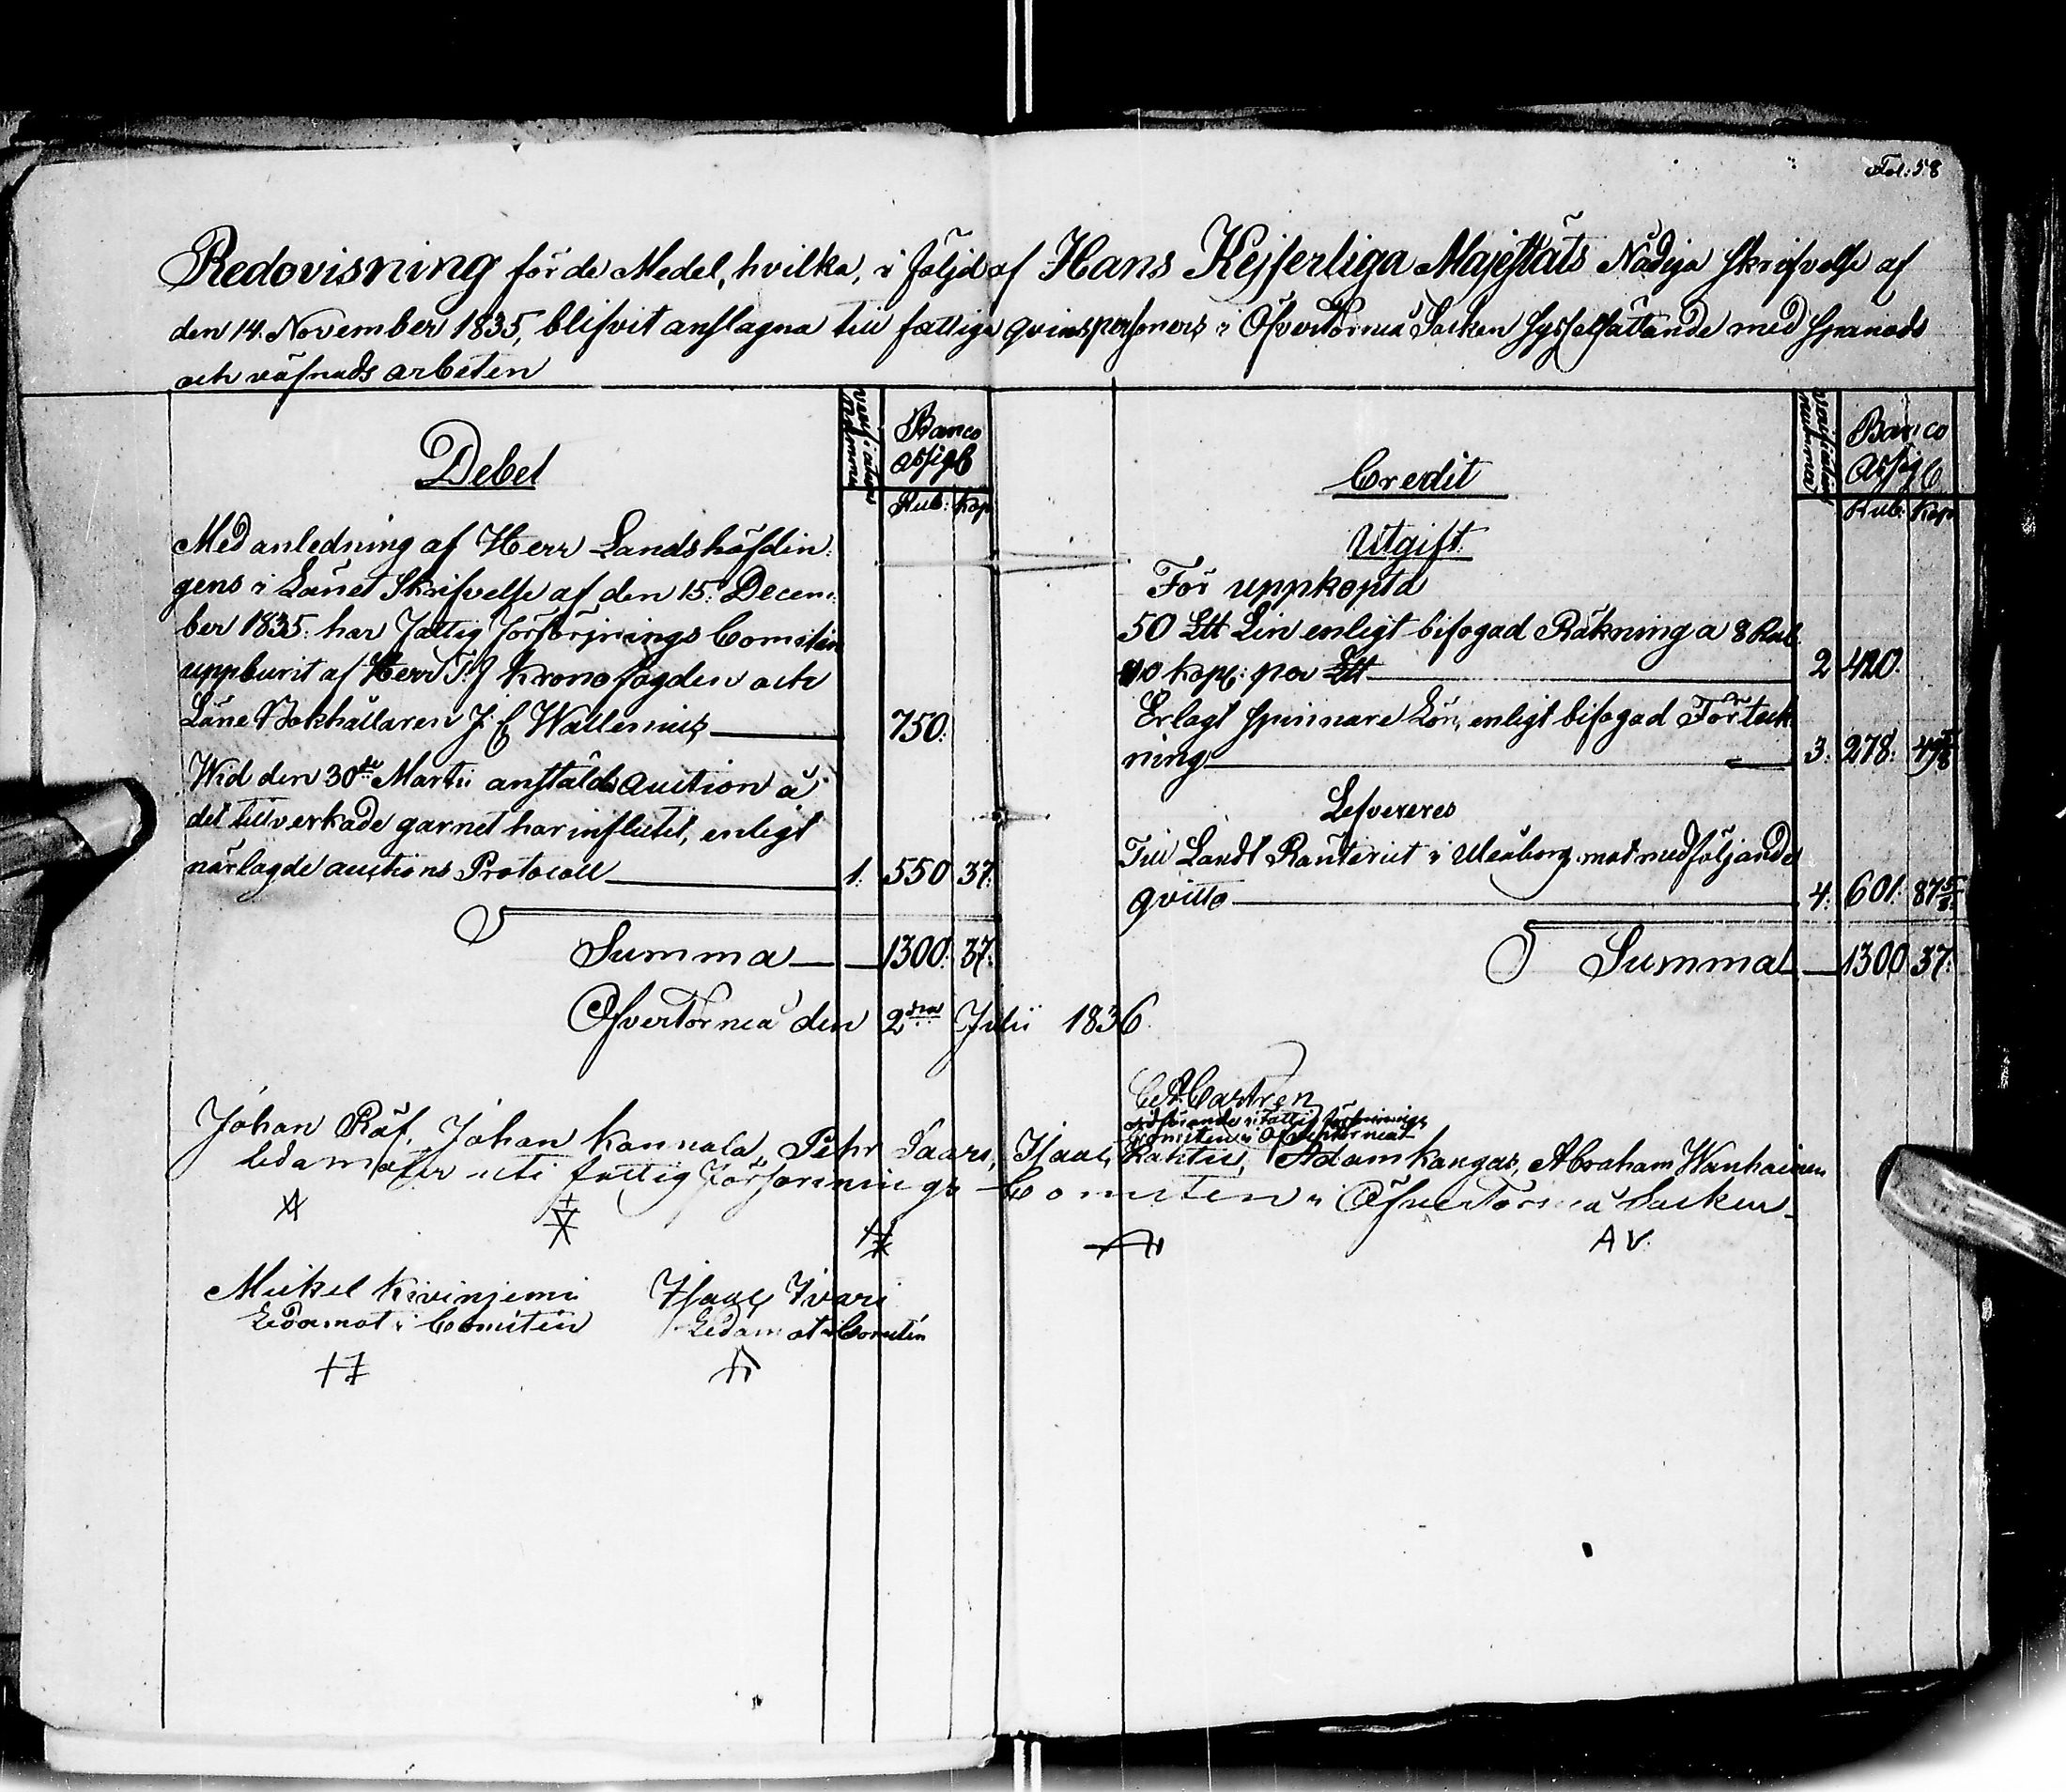 Fol: 58
Redovisning för de Medel, hvilka, i följd af Hans Kejserliga Majestäts Nådiga skrifvelse af
den 14. November 1835, blifvit anslagna till fattiga qvinspersoners i Öfvertorneå Socken sysselsättande med spanads
och väfnads arbeten
Debet
Verifications
Nummer
Banco
assign
Rub: Kop
Med anledning af Herr Landshöfdin-
gens i Länet Skrifvelse af den 15. Decem-
ber 1835. har Fattig Försörjnings Comitén
uppburit af Herr T.f Kronofogden och
Läns Bokhållaren J. E Wallenius 750.
Wid den 30de Martii anstäld auction å
det tillverkade garnet har influtit, enligt
närlagde auctions Protocoll 1. 550 37.
Summa 1300. 37.
Credit
Verifications
nummer
Banco
assign
Rub: Kop
Utgift.
För uppköpta
50 L℔ Lin enligt bifogad Räkning a 8 Rub
40 Kop: per L℔ 2 420.
Erlagt spinnare Lön, enligt bifogad Förteck-
ning 3. 278. 49 3/8
Lefvereres
Till Landt Ränteriet i Uleåborg mot medföljande
qvitto 4. 601. 87 5/8
Summa 1300 37.
Öfvertorneå den 2dra Julii 1836.
Castren
ordförande i Fattig försörjnings
Comitéen i Öfvertorneå
Johan Räf, Johan Kannala, Pehr Saari, Isaac Rantu, Adam Kangas, Abraham Wanhainen
Ledamöter uti fattig försörjnings Comiten i Öfvertorneå Socken
A V.
Mickel Kiviniemi Isaac Ivari
Ledamot i Comitén Ledamot i Comitén